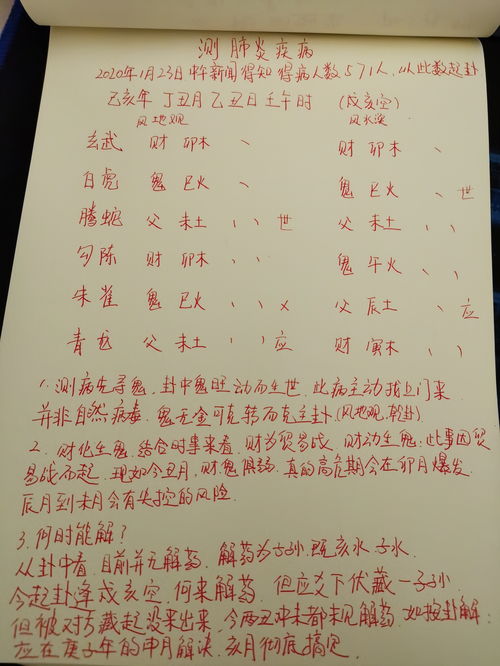 测肺炎疾病
2020年1月23日中午新闻得知 得病人数571人，以此数起卦
己亥年 丁丑月 乙丑日 壬午时 （戌亥空）
风地观 风水涣
玄武 财 卯木 、 财 卯木 、
白虎 鬼 巳火 、 鬼 巳火 、 世
腾蛇 父 未土 、、 世 父 未土 、、
勾陈 财 卯木 、、 鬼 午火 、、
朱雀 鬼 巳火 、、 x 父 辰土 、 应
青龙 父 未土 、、 应 财 寅木 、、
1. 测病先寻鬼，卦中鬼旺动而生世，此病主动找上门来
并非自然病毒，鬼无金可克转而克主卦（风地观，乾卦）
2. 财化生鬼，结合时事来看，财为贸易战，财动生鬼，此事因贸
易战而起，现如今丑月，财鬼俱弱，真的高危期会在卯月爆发，
辰月到未月会有失控的风险
3. 何时能解？
从卦中看，目前并无解药，解药为子孙，既亥水 子水
今起卦逢戌亥空，何来解药，但应爻下伏藏一子孙
但被对方藏起没来出来，今两丑冲未都未见解药，如按卦解：
应在庚子年的申月解决，亥月彻底搞定